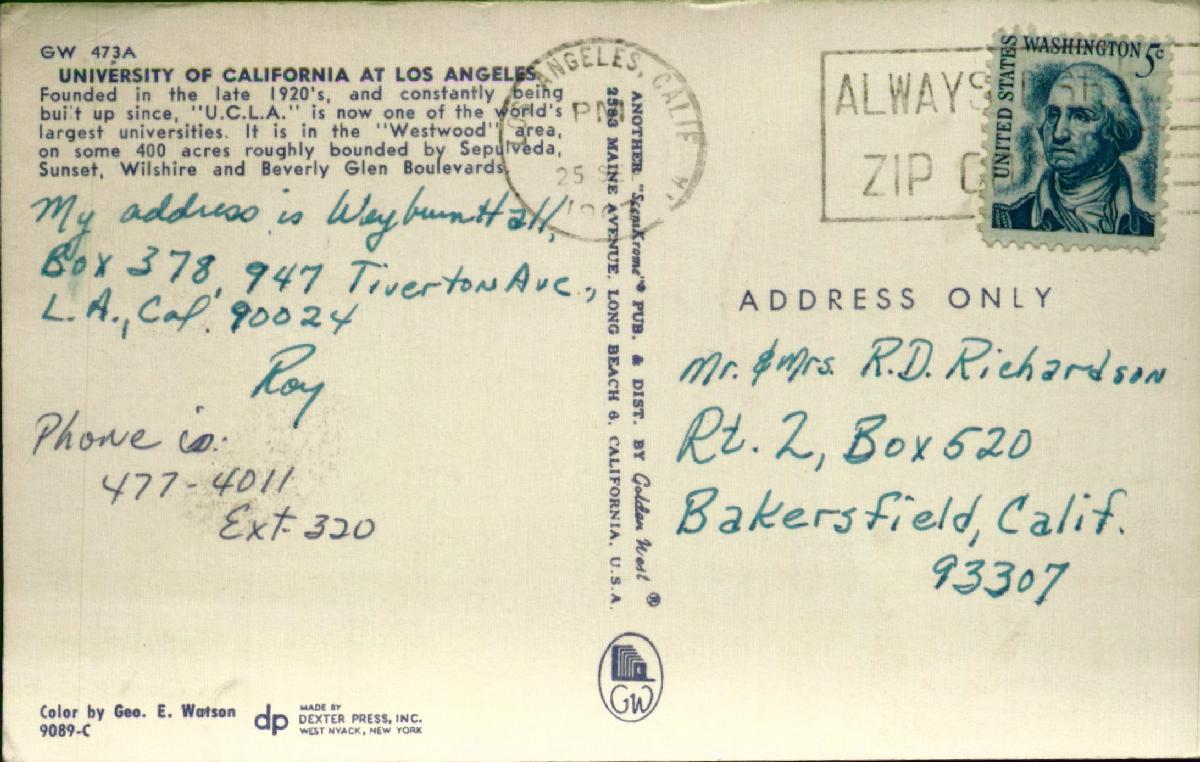 GW 473A
UNIVERSITY OF CALIFORNIA AT LOS ANGELES
Founded in the late 1920's, and constantly being
built up since, "U.C.L.A." is now one of the world's
largest universities. It is in the "Westwood" area,
on some 400 acres roughly bounded by Sepulveda,
Sunset, Wilshire and Beverly Glen Boulevards.
My address is Weyburn Hall,
Box 378, 947 Tiverton Ave.,
L.A., Cal. 90024
Roy
Phone is:
477-4011
Ext. 320
Color by Geo. E. Watson
9089-C
dp
MADE BY
DEXTER PRESS, INC.
WEST NYACK, NEW YORK
ANOTHER "ScenKrome"® PUB. & DIST. BY Golden West ®
2583 MAINE AVENUE, LONG BEACH 6, CALIFORNIA, U.S.A.
GW
ANGELES, CALIF
PM
25
ALWAYS
ZIP
UNITED STATES
WASHINGTON 5c
ADDRESS ONLY
Mr. & Mrs. R.D. Richardson
Rt. 2, Box 520
Bakersfield, Calif.
93307